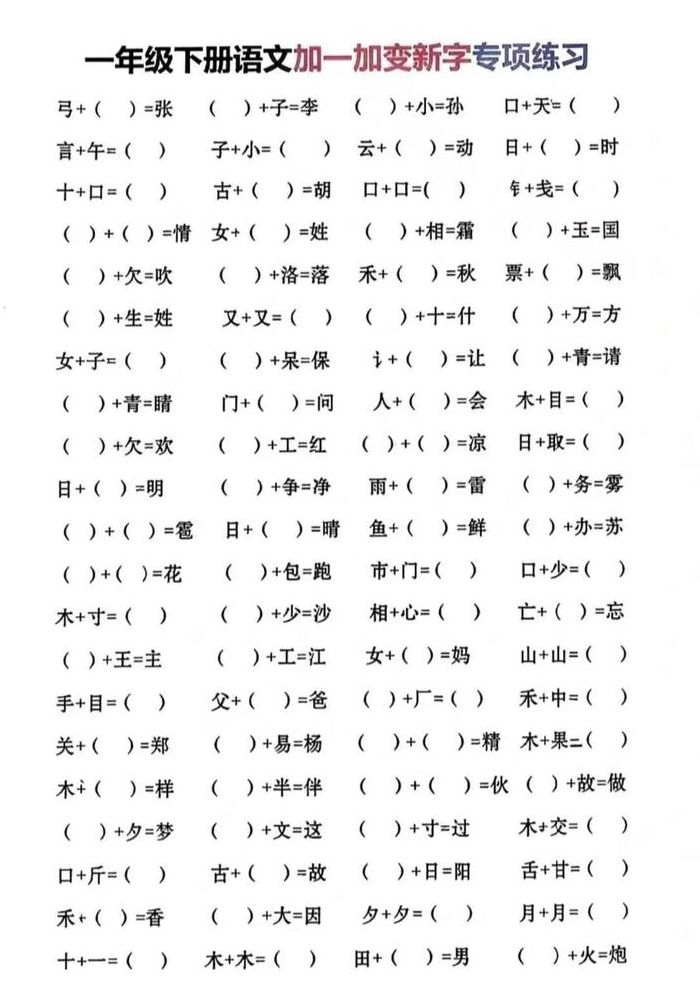 一年级下册语文加一加变新字专项练习
弓+( )=张 ( )+子=李 ( )+小=孙 口+天=( )
言+午=( ) 子+小=( ) 云+( )=动 日+( )=时
十+口=( ) 古+( )=胡 口+口=( ) 钅+戋=( )
( )+( )=情 女+( )=姓 ( )+相=霜 ( )+玉=国
( )+欠=吹 ( )+洛=落 禾+( )=秋 票+( )=飘
( )+生=姓 又+又=( ) ( )+十=什 ( )+万=方
女+子=( ) ( )+呆=保 讠+( )=让 ( )+青=请
( )+青=睛 门+( )=问 人+( )=会 木+目=( )
( )+欠=欢 ( )+工=红 ( )+( )=凉 日+取=( )
日+( )=明 ( )+争=净 雨+( )=雷 ( )+务=雾
( )+( )=雹 日+( )=晴 鱼+( )=鲜 ( )+办=苏
( )+( )=花 ( )+包=跑 市+门=( ) 口+少=( )
木+寸=( ) ( )+少=沙 相+心=( ) 亡+( )=忘
( )+王=主 ( )+工=江 女+( )=妈 山+山=( )
手+目=( ) 父+( )=爸 ( )+厂=( ) 禾+中=( )
关+( )=郑 ( )+易=杨 ( )+( )=精 木+果=( )
木+( )=样 ( )+半=伴 ( )+( )=伙 ( )+故=做
( )+夕=梦 ( )+文=这 ( )+寸=过 木+交=( )
口+斤=( ) 古+( )=故 ( )+日=阳 舌+甘=( )
禾+( )=香 ( )+大=因 夕+夕=( ) 月+月=( )
十+一=( ) 木+木=( ) 田+( )=男 ( )+火=炮